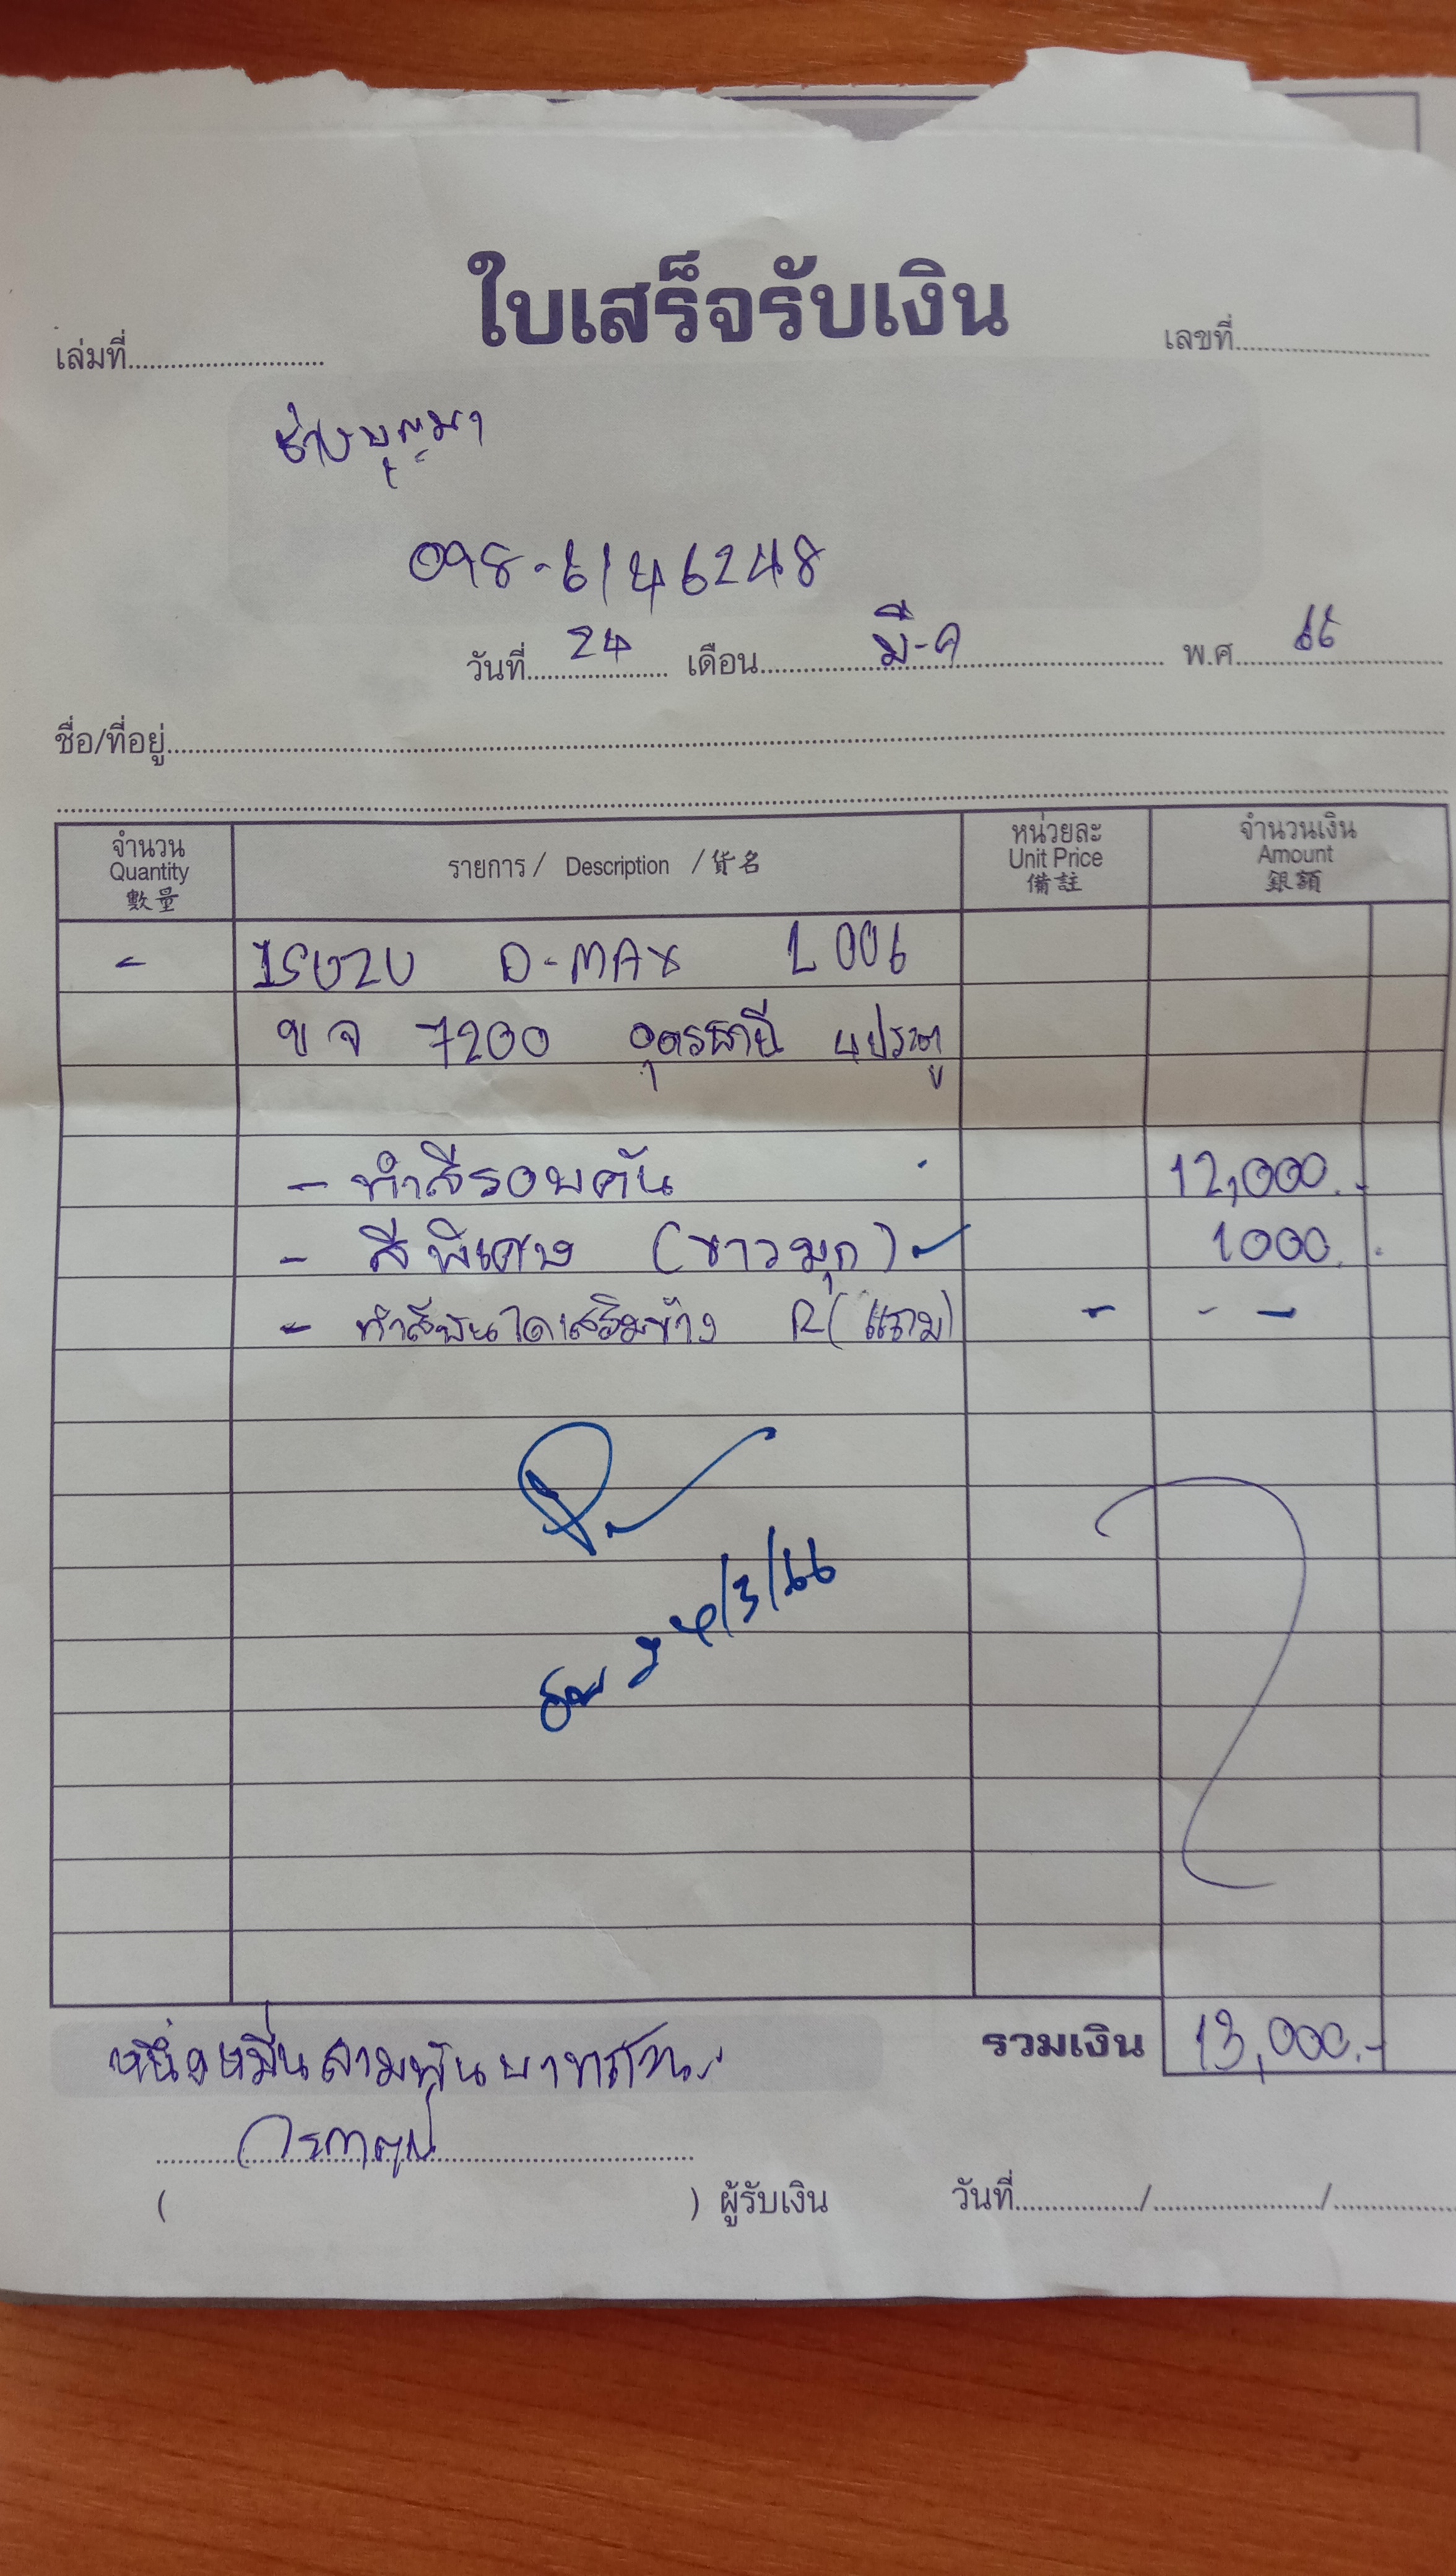 ใบเสร็จรับเงิน
เล่มที่ เลขที่
ช่างบุญมา
098-6146248
วันที่ 24 เดือน มี-ค พ.ศ. 66
ชื่อ/ที่อยู่
จำนวน Quantity 數量 รายการ / Description / 貨名 หน่วยละ Unit Price 備註 จำนวนเงิน Amount 銀額
- ISUZU D-MAX L006
ขจ 7200 อุดรธานี 4ประตู
- ทำสีรอบคัน 12,000.-
- สีพิเศษ (ขาวมุก) 1000.
- ทำสีบันไดเสริมข้าง R(แถม) - - -
24/3/66
หนึ่งหมื่นสามพันบาทถ้วน รวมเงิน 13,000.-
( ) ผู้รับเงิน วันที่ / /